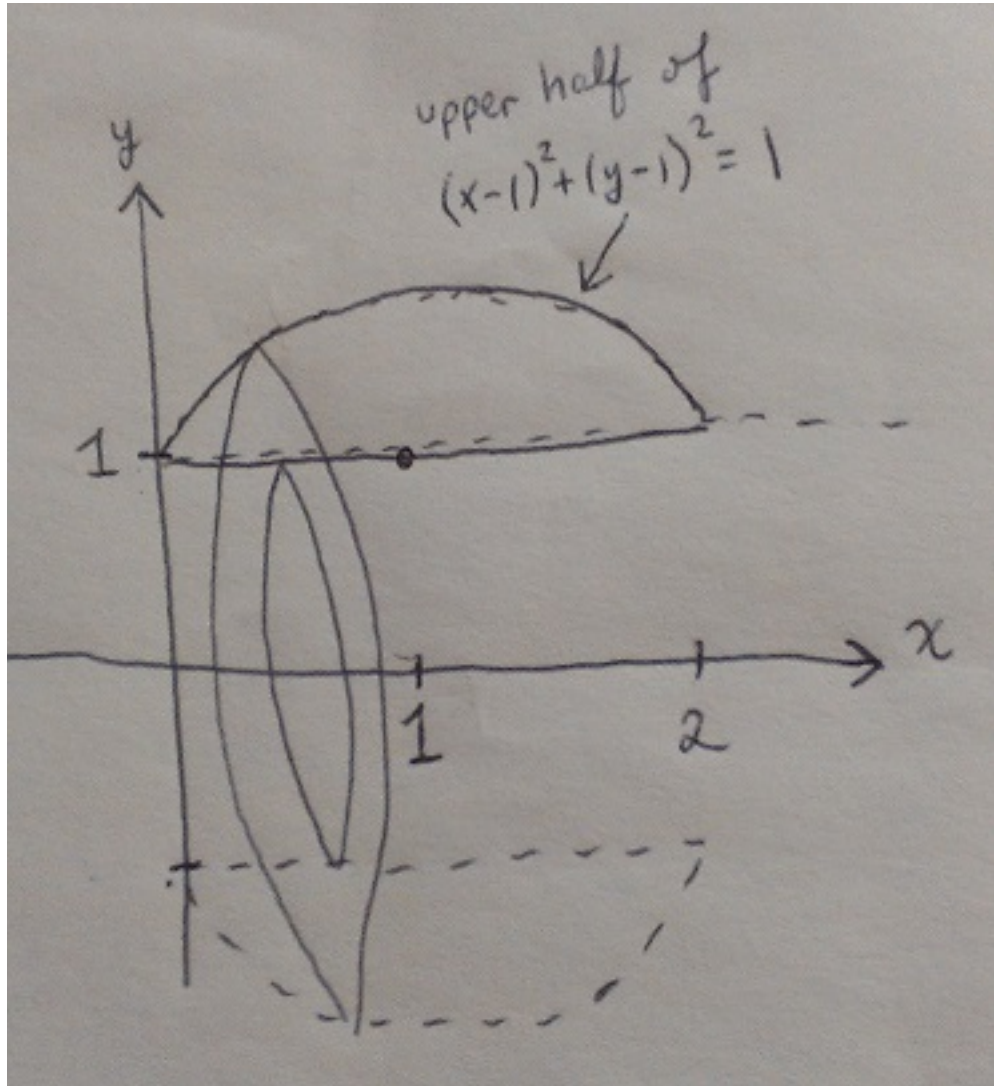 upper half of
(x-1)²+(y-1)²=1
y
1
x
1 2